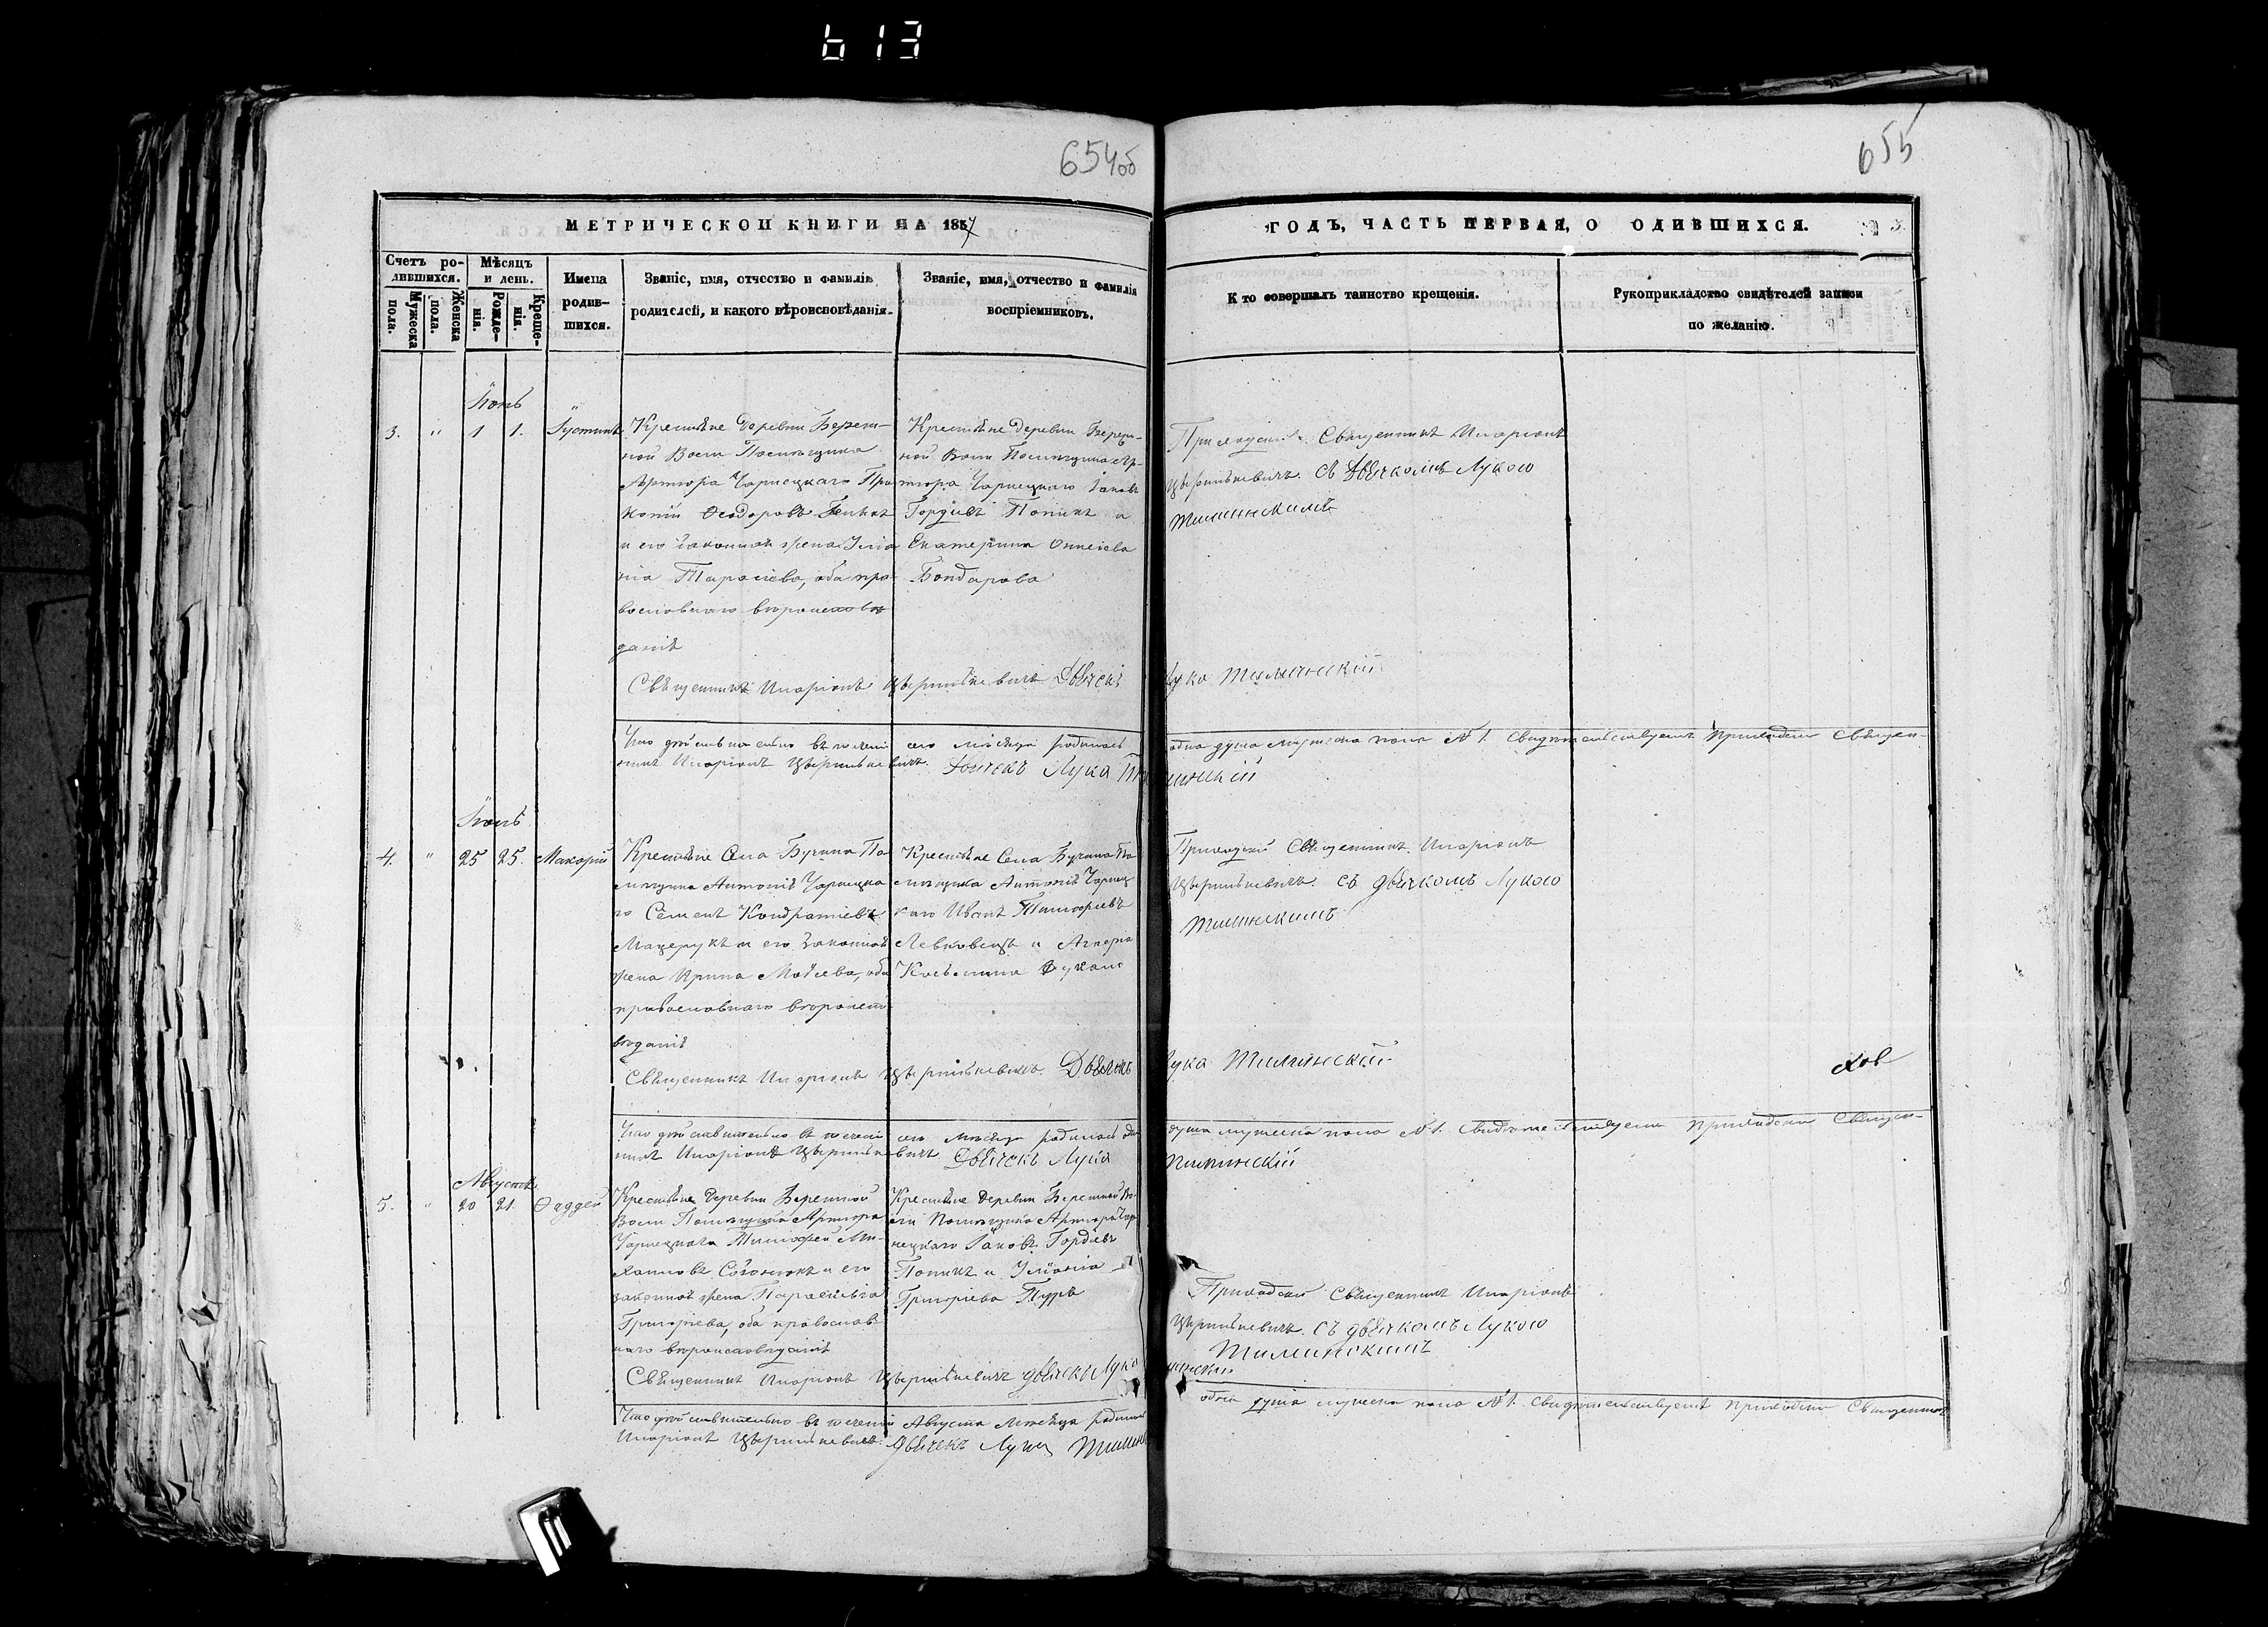 613
654об
655
МЕТРИЧЕСКОЙ КНИГИ НА 1857
ГОДЪ, ЧАСТЬ ПЕРВАЯ, О ОДИВШИХСЯ.
Счетъ ро-
дившихся.
Мужеска
пола.
Женска
пола.
Мѣсяцъ
и день.
Рожде-
нія.
Креще-
нія.
Имена
родив-
шихся.
Званіе, имя, отчество и фамилія
родителей, и какого вѣроисповѣданія.
Званіе, имя, отчество и фамилія
воспріемниковъ.
Кто совершалъ таинство крещенія.
Рукоприкладство свидѣтелей записи
по желанію.
3. " 1 1. Іустинъ
Крестьяне деревни Береж-
ной Воли Помѣщика
Артюра Чарнецкаго Про
копій Ѳеодоровъ
и его законная жена Уліа
нія Тарасіева, оба пра-
вославнаго вѣроисповѣ
даніѣ
Крестьяне деревни Береж-
ной Воли Помѣщика Ар-
тюра Чарнецкаго Іаковъ
Гордіевъ Попикъ и
Екатерина
Бондарова
Приходскій Священникъ Иларіонъ
съ Дьячкомъ Лукою
Тиминскимъ
Священникъ Иларіонъ Дьячекъ Лука Тиминскій
Что дѣйствительно въ теченіи сего мѣсяца родилась одна душа мужеска пола №1. Свидѣтельствуетъ Приходскій Священ-
никъ Иларіонъ Дьячекъ Лука Тиминскій
4. " 25 25. Макарій
Крестьяне Села Бучина По
мѣщика Антонія Чарнецка
го Семенъ Кондратіевъ
Мацерукъ и его законная
жена Ирина Моѵсеева, оба
православнаго вѣроиспо
вѣданіѣ
Крестьяне Села Бучина По
мѣщика Антонія Чарнец
каго Иванъ Тимофіевъ
Левковецъ и
Приходскій Священникъ Иларіонъ
съ дьячкомъ Лукою
Тиминскимъ
Священникъ Иларіонъ Дьячекъ Лука Тиминскій
Что дѣйствительно въ теченіи сего мѣсяца родилась одна душа мужеска пола №1. Свидѣтельствуетъ Приходскій Священ-
никъ Иларіонъ Дьячекъ Лука Тиминскій
Августъ
5. " 20 21. Ѳаддей
Крестьяне деревни Бережной
Воли Помѣщика Артюра
Чарнецкаго Тимофей Ми-
хайловъ и его
законная жена Параскева
Григоріева, оба православ
наго вѣроисповѣданіѣ
Крестьяне деревни Бережной Во-
ли Помѣщика Артюра Чар
нецкаго Іаковъ Гордіевъ
Попикъ и Уліанія
Григоріева
Приходскій Священникъ Иларіонъ
съ дьячкомъ Лукою
Тиминскимъ
Священникъ Иларіонъ дьячекъ Лука Тиминскій
Что дѣйствительно въ теченіи Августа мѣсяца родилась одна душа мужеска пола №1. Свидѣтельствуетъ Приходскій Священникъ
Иларіонъ Дьячекъ Лука